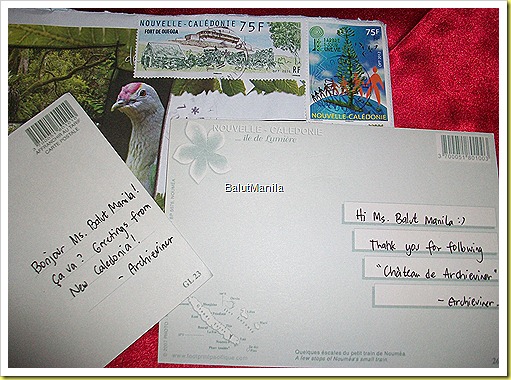 NOUVELLE-CALÉDONIE 75F
FORT DE OUEGOA
RF
75F
NOUVELLE-CALÉDONIE
AFFRANCHIR AU TARIF
CARTE POSTALE
Bonjour Ms. Balut Manila!
Ça va? Greetings from
New Caledonia!
- Archieviner
GL 23
NOUVELLE-CALÉDONIE
... île de Lumière
3 700005 180100
BalutManila
Hi Ms. Balut Manila :)
Thank you for following
"Château de Archieviner"
- Archieviner
Quelques escales du petit train de Nouméa
A few stops of Nouméa's small train.